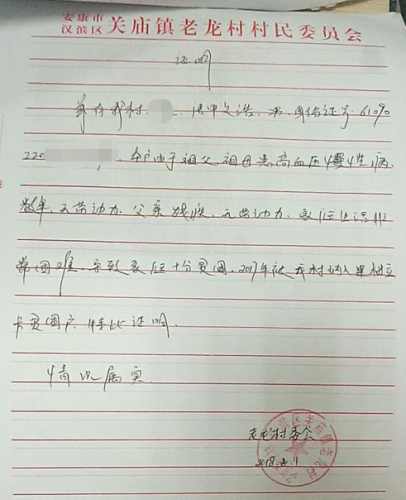 安康市
汉滨区 关庙镇老龙村村民委员会
证明
兹有我村 法甲文浩,男,身份证号:61090
220 ,本户由于祖父、祖母患高血压慢性病
数年,无劳动力,父亲残疾,无劳动力,家庭生活非
常困难,导致家庭十分贫困,2017年被我村纳入建档立
卡贫困户,特此证明。
情况属实
老龙村委会
2018.8.1